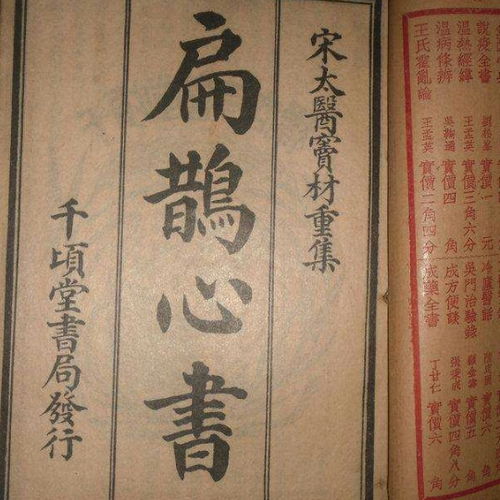 說疫全書 劉松峯 實價一元 冷廬醫話 實價六角
溫熱經緯 王孟英 實價三角六分 吳門治驗錄 顧金壽 實價五角
溫病條辨 吳鞠通 實價四角 成方便談 張秉成 實價四角八分
王氏霍亂論 王孟英 實價二角四分 成藥全書 丁甘仁 實價六角
宋太醫竇材重集
扁鵲心書
千頃堂書局發行